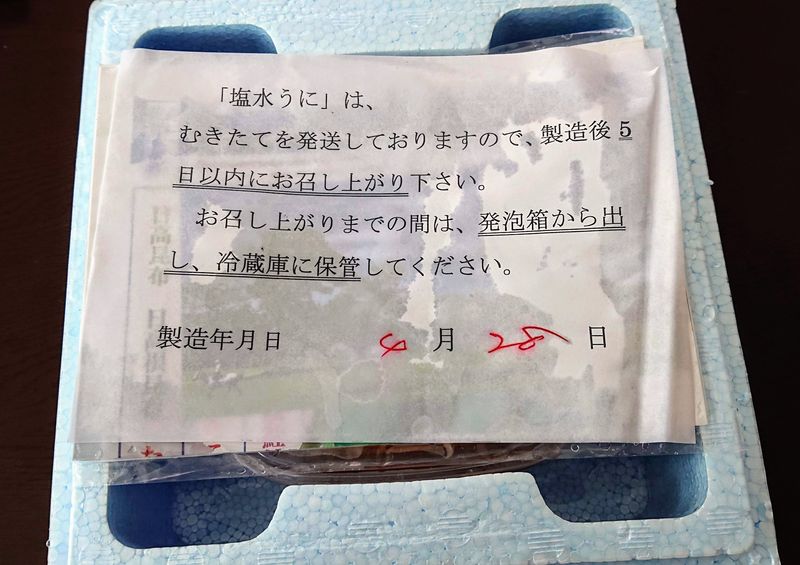 「塩水うに」は、
むきたてを発送しておりますので、製造後5
日以内にお召し上がり下さい。
お召し上がりまでの間は、発泡箱から出
し、冷蔵庫に保管してください。
製造年月日 4月 28日